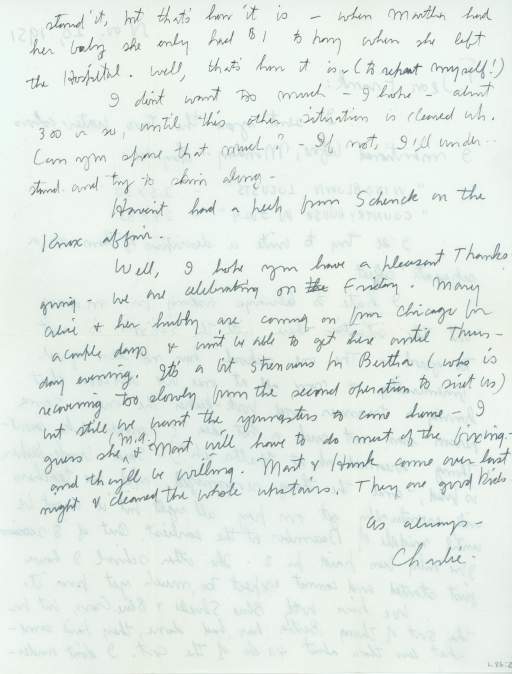 stand it, but that's how it is — when Martha had
her baby she only had $1 to pay when she left
the Hospital. Well, that's how it is. (to repeat myself!)
I don't want too much — I hope — about
300 or so, until this other situation is cleared up.
Can you spare that much? — If not, I'll under-
stand and try to skim along —
Haven't had a peep from Schenck on the
Knox affair.
Well, I hope you have a pleasant Thanks
giving — we are celebrating on the Friday. Mary
Alice & her hubby are coming on from Chicago for
a couple days & won't be able to get here until Thurs-
day evening. It's a bit strenuous for Bertha (who is
recovering too slowly from the second operation to suit us)
but still we want the youngsters to come home — I
guess she, (M.A.) & Mart will have to do most of the fixing —
and they'll be willing. Mart & Hank came over last
night & cleaned the whole upstairs. They are good kids
As always —
Charlie.